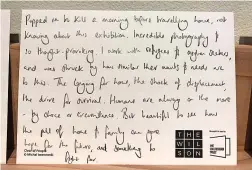 Popped in to kill a morning before travelling home, not
knowing about this exhibition. Incredible photography &
so thought-provoking. I work with refugees & asylum seekers,
and was struck by how similar their wants & needs are
to this. The longing for home, the shock of displacement,
the drive for survival. Humans are always on the move
- by choice or circumstance. But beautiful to see how
the pull of home & family can give
hope for the future, and something to
fight for
THE
WILSON